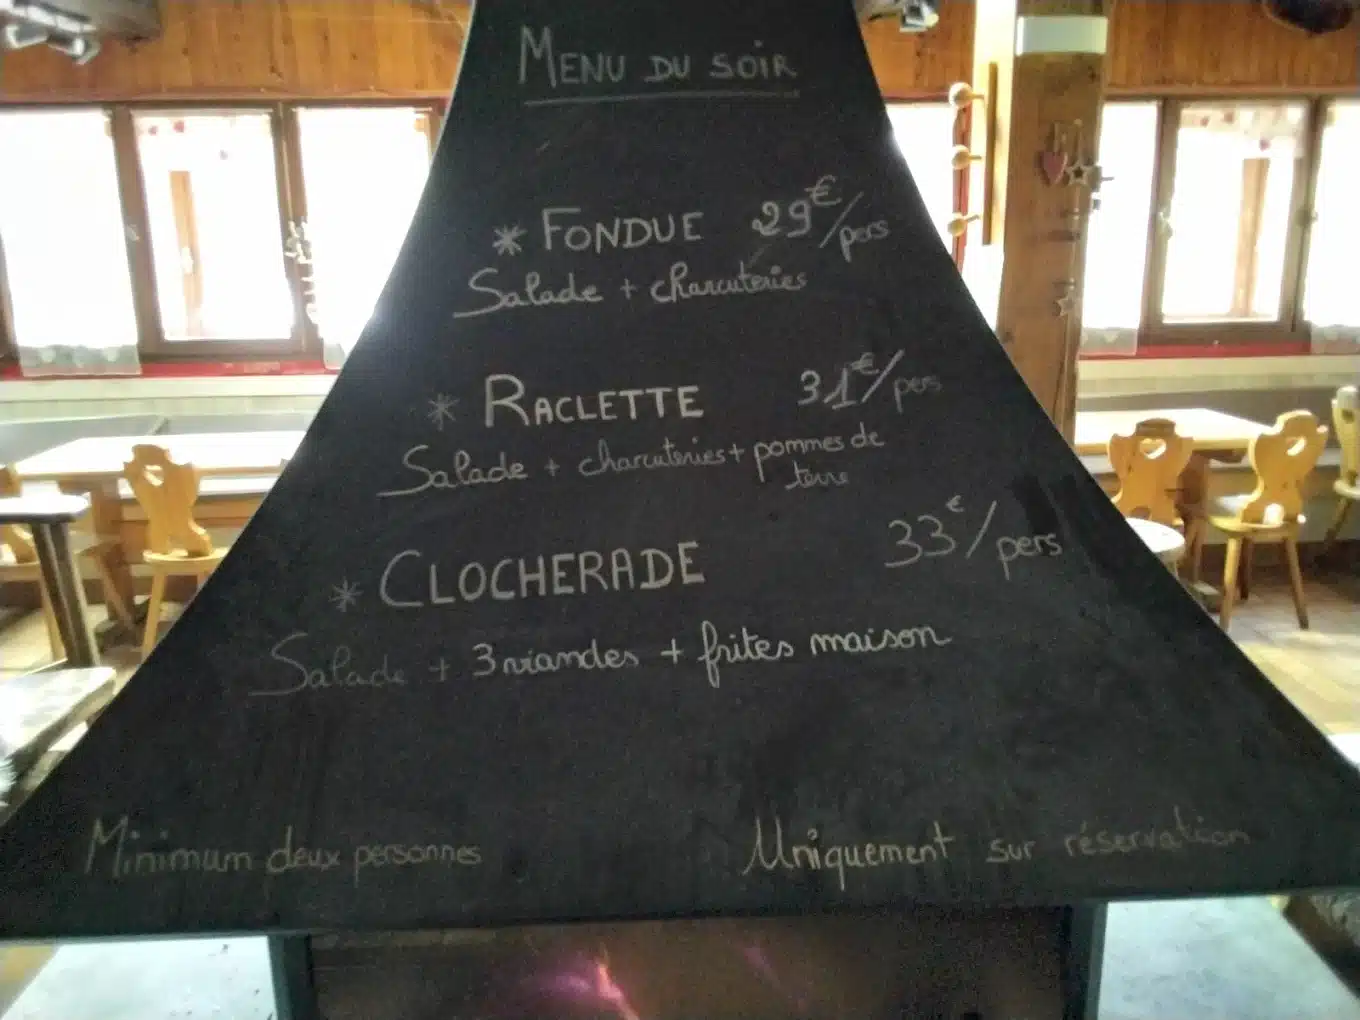 MENU DU SOIR
* FONDUE 29€/pers
Salade + charcuteries
* RACLETTE 31€/pers
Salade + charcuteries + pommes de
terre
* CLOCHERADE 33€/pers
Salade + 3 viandes + frites maison
Minimum deux personnes
Uniquement sur réservation